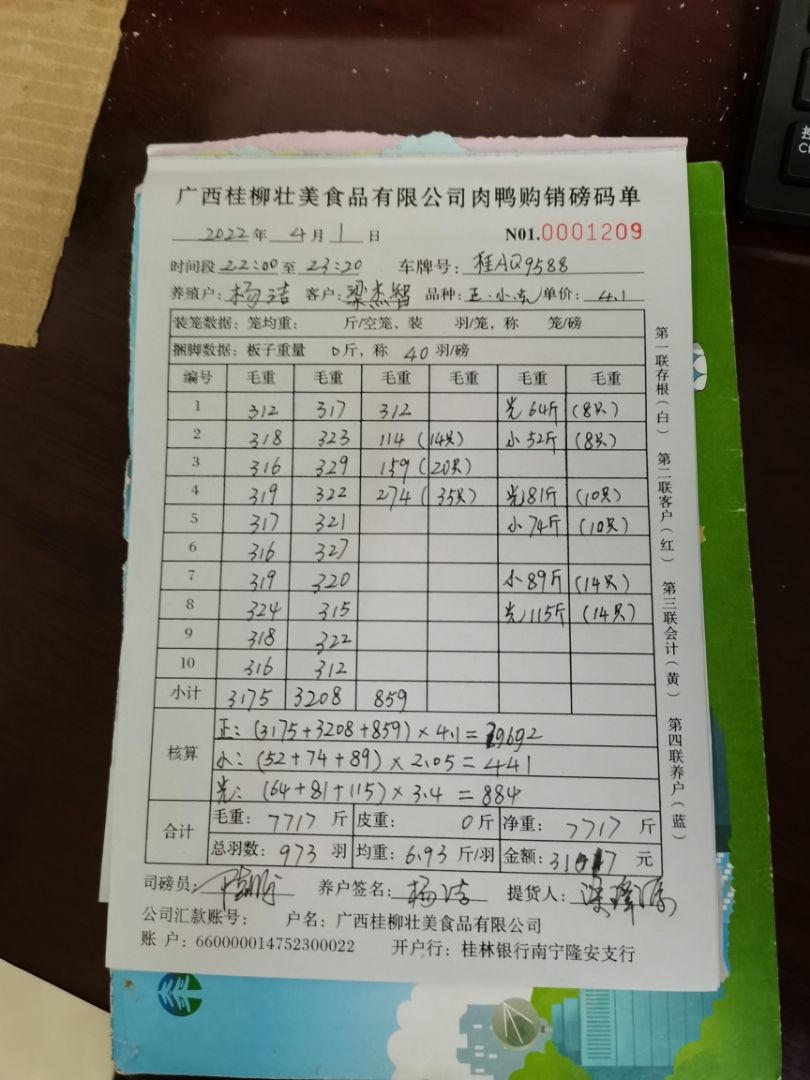 广西桂柳壮美食品有限公司肉鸭购销磅码单
2022年 4月 1日 N01.0001209
时间段 22:00 至 23:20 车牌号: 桂AQ9588
养殖户: 杨洁 客户: 梁杰智 品种: 正.小光 单价: 4.1
装笼数据: 笼均重: 斤/空笼, 装 羽/笼, 称 笼/磅
捆脚数据: 板子重量 0斤, 称 40 羽/磅
编号 毛重 毛重 毛重 毛重 毛重 毛重
1 312 317 312 光64斤 (8只)
2 318 323 114 (14只) 小52斤 (8只)
3 316 329 159 (20只)
4 319 322 274 (35只) 光81斤 (10只)
5 317 321 小74斤 (10只)
6 316 327
7 319 320 小89斤 (14只)
8 324 315 光115斤 (14只)
9 318 322
10 316 312
小计 3175 3208 859
核算
正: (3175+3208+859)×4.1=29692
小: (52+74+89)×2.05=441
光: (64+81+115)×3.4=884
合计
毛重: 7717 斤 皮重: 0斤 净重: 7717 斤
总羽数: 973 羽 均重: 6.93 斤/羽 金额: 31017 元
司磅员: 养户签名: 杨洁 提货人:
公司汇款账号: 户名: 广西桂柳壮美食品有限公司
账 户: 660000014752300022 开户行: 桂林银行南宁隆安支行
第一联存根(白) 第二联客户(红) 第三联会计(黄) 第四联养户(蓝)
控